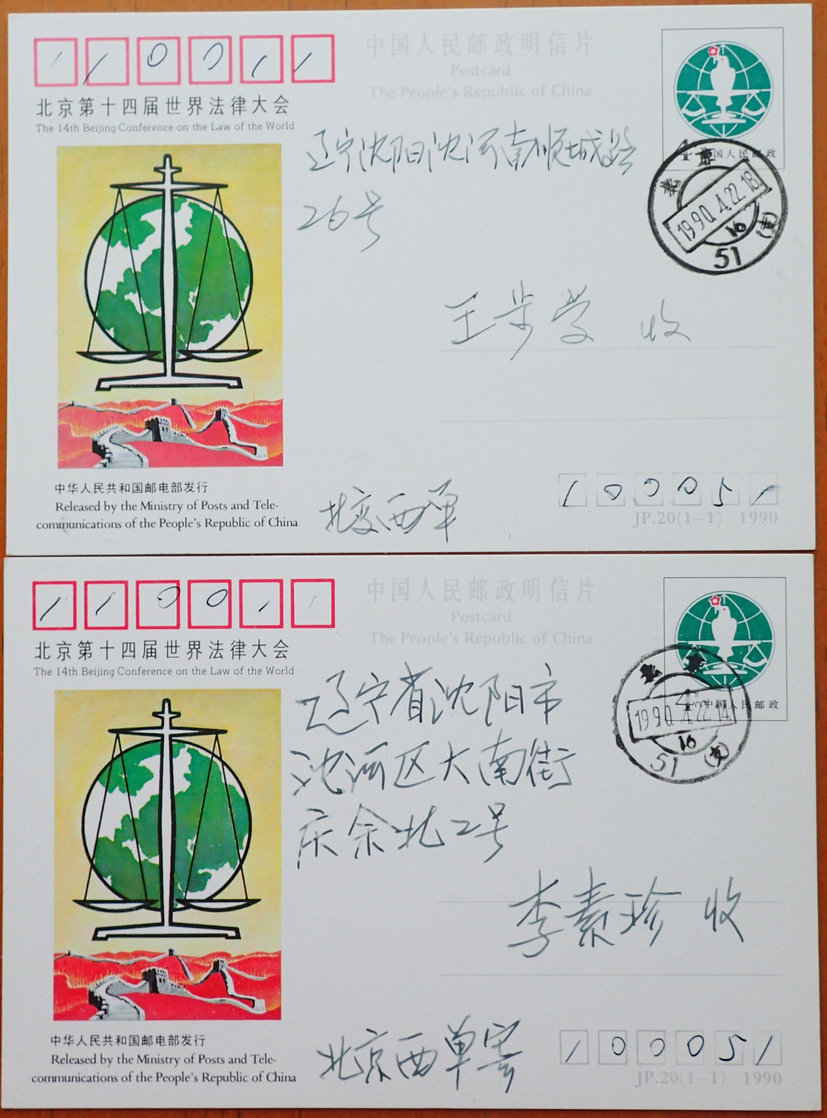 1 1 0 0 1 1
北京第十四届世界法律大会
The 14th Beijing Conference on the Law of the World
中国人民邮政明信片
Postcard
The People's Republic of China
中国人民邮政
北京
1990.4.22.18
16
51 (支)
辽宁沈阳沈河南顺城路
26号
王步学 收
中华人民共和国邮电部发行
Released by the Ministry of Posts and Tele-
communications of the People's Republic of China
北京西单
1 0 0 0 5 1
JP.20(1—1) 1990
1 1 0 0 1 1
北京第十四届世界法律大会
The 14th Beijing Conference on the Law of the World
中国人民邮政明信片
Postcard
The People's Republic of China
中国人民邮政
北京
1990.4.22.14
16
51 (支)
辽宁省沈阳市
沈河区大南街
庆余北2号
李素珍 收
中华人民共和国邮电部发行
Released by the Ministry of Posts and Tele-
communications of the People's Republic of China
北京西单寄
1 0 0 0 5 1
JP.20(1—1) 1990